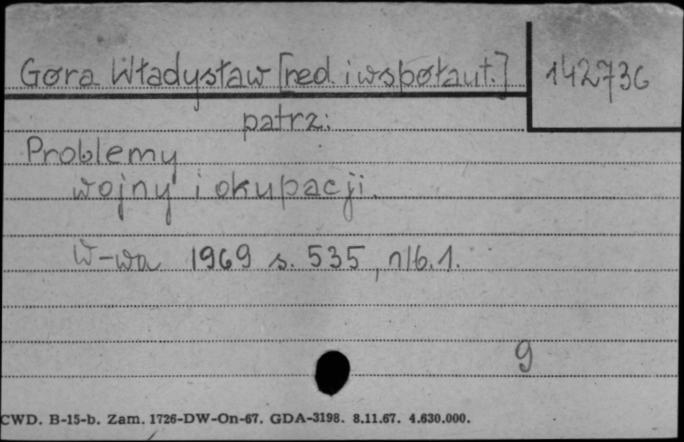 Góra Władysław [red. i współaut.] 142736
patrz:
Problemy
wojny i okupacji.
W-wa 1969 s. 535, nlb. 1.
9
CWD. B-15-b. Zam. 1726-DW-On-67. GDA-3198. 8.11.67. 4.630.000.